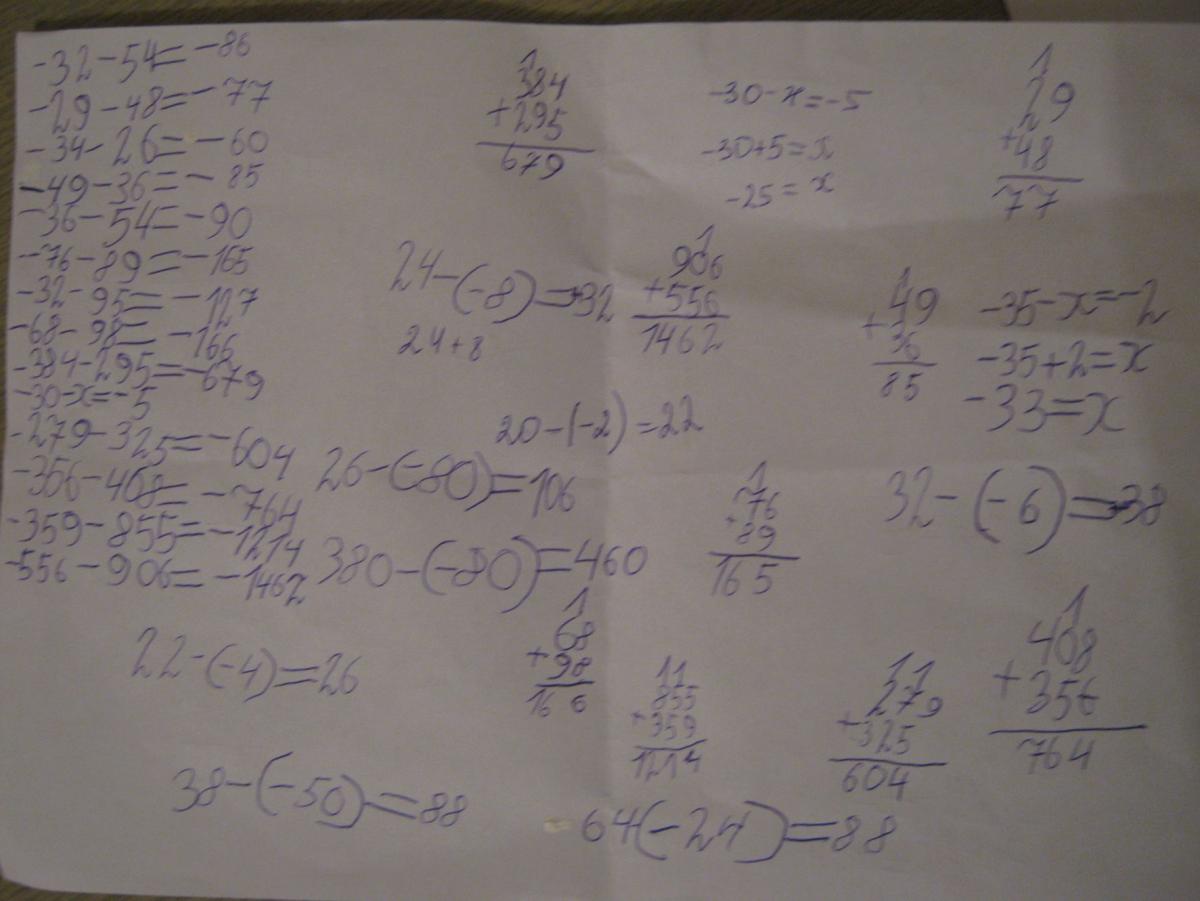 -32-54=-86
-29-48=-77
-34-26=-60
-49-36=-85
-36-54=-90
-76-89=-165
-32-95=-127
-68-98=-166
-384-295=-679
-30-x=-5
-279-325=-604
-356-408=-764
-359-855=-1214
-556-906=-1462
1
384
+295
679
-30-x=-5
-30+5=x
-25=x
1
29
+48
77
24-(-8)=+32
24+8
1
906
+556
1462
1
49
+36
85
-35-x=-2
-35+2=x
-33=x
20-(-2)=22
26-(-80)=106
1
76
+89
165
32-(-6)=+38
380-(-80)=460
22-(-4)=26
1
68
+98
166
11
855
+359
1214
11
279
+325
604
1
408
+356
764
38-(-50)=88
64(-24)=88